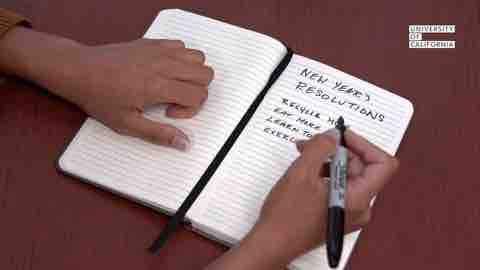 UNIVERSITY
OF
CALIFORNIA
NEW YEAR'S
RESOLUTIONS
RECYCLE
EAT MORE
LEARN TO